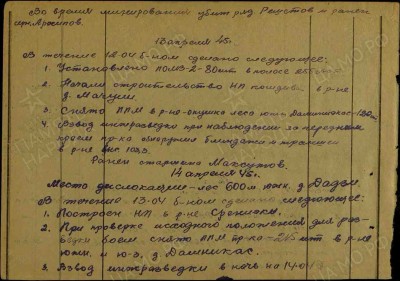 Во время минирования убит ряд. Решетов и ранен
13 апреля 45г.
В течение 12.04 б-ном сделано следующее:
1. Установлено ПОМЗ-2-80шт в полосе
2. Начали строительство НП комдива в р-не
д.
3. Снято ППМ в р-не опушке леса южн.
4. Взвод инжразведки при наблюдении за передним
краем пр-ка обнаружил блиндажи и траншеи
в р-не выс
Ранен старшина Максутов.
14 апреля 45г.
Место дислокации-лес 600м южн. д.
В течение 13-04 б-ном сделано следующее:
1. Построен НП в р-не
2. При проверке исходного положения для раз-
ведки боем снято ППМ пр-ка шт в р-не
южн. и ю-з. д.
3. Взвод инжразведки в ночь на 14.04